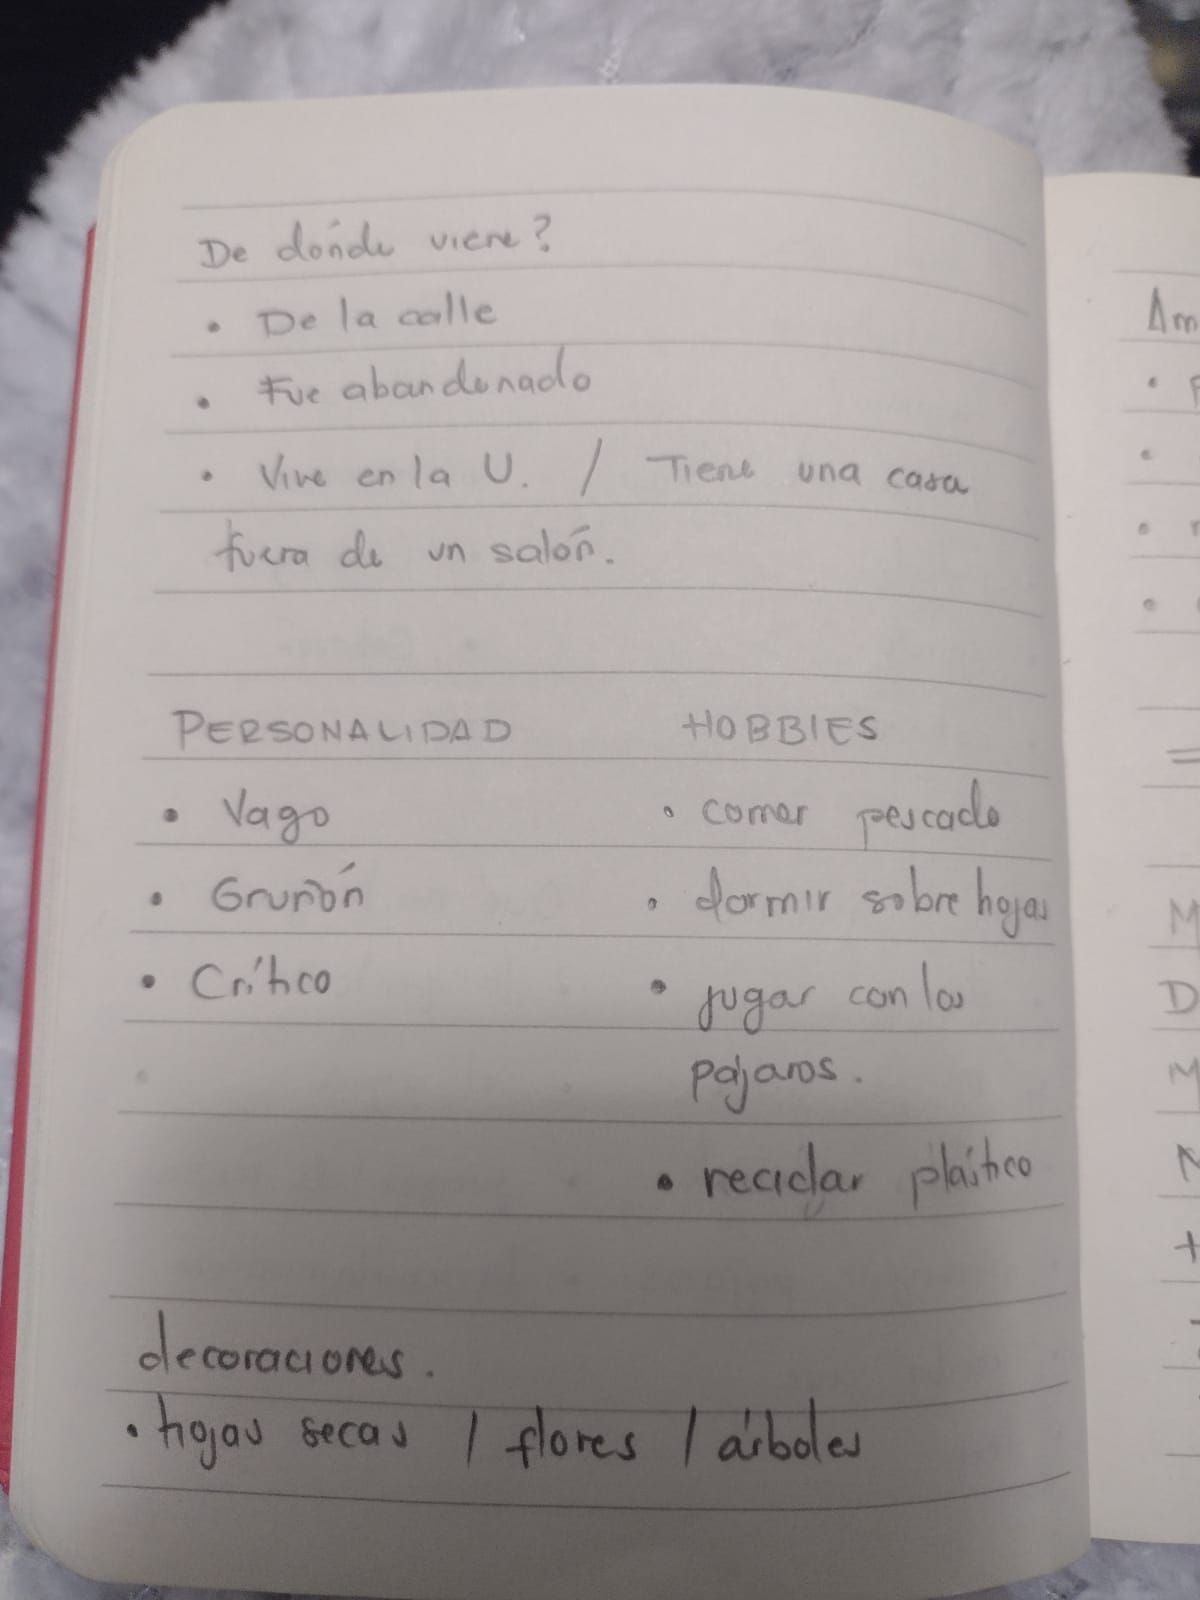 De dónde viene?
• De la calle
• Fue abandonado
• Vive en la U. / Tiene una casa
fuera de un salón.
PERSONALIDAD
• Vago
• Gruñón
• Crítico
HOBBIES
• comer pescado
• dormir sobre hojas
• jugar con los
pájaros.
• reciclar plástico
decoraciones.
• hojas secas / flores / árboles
Am